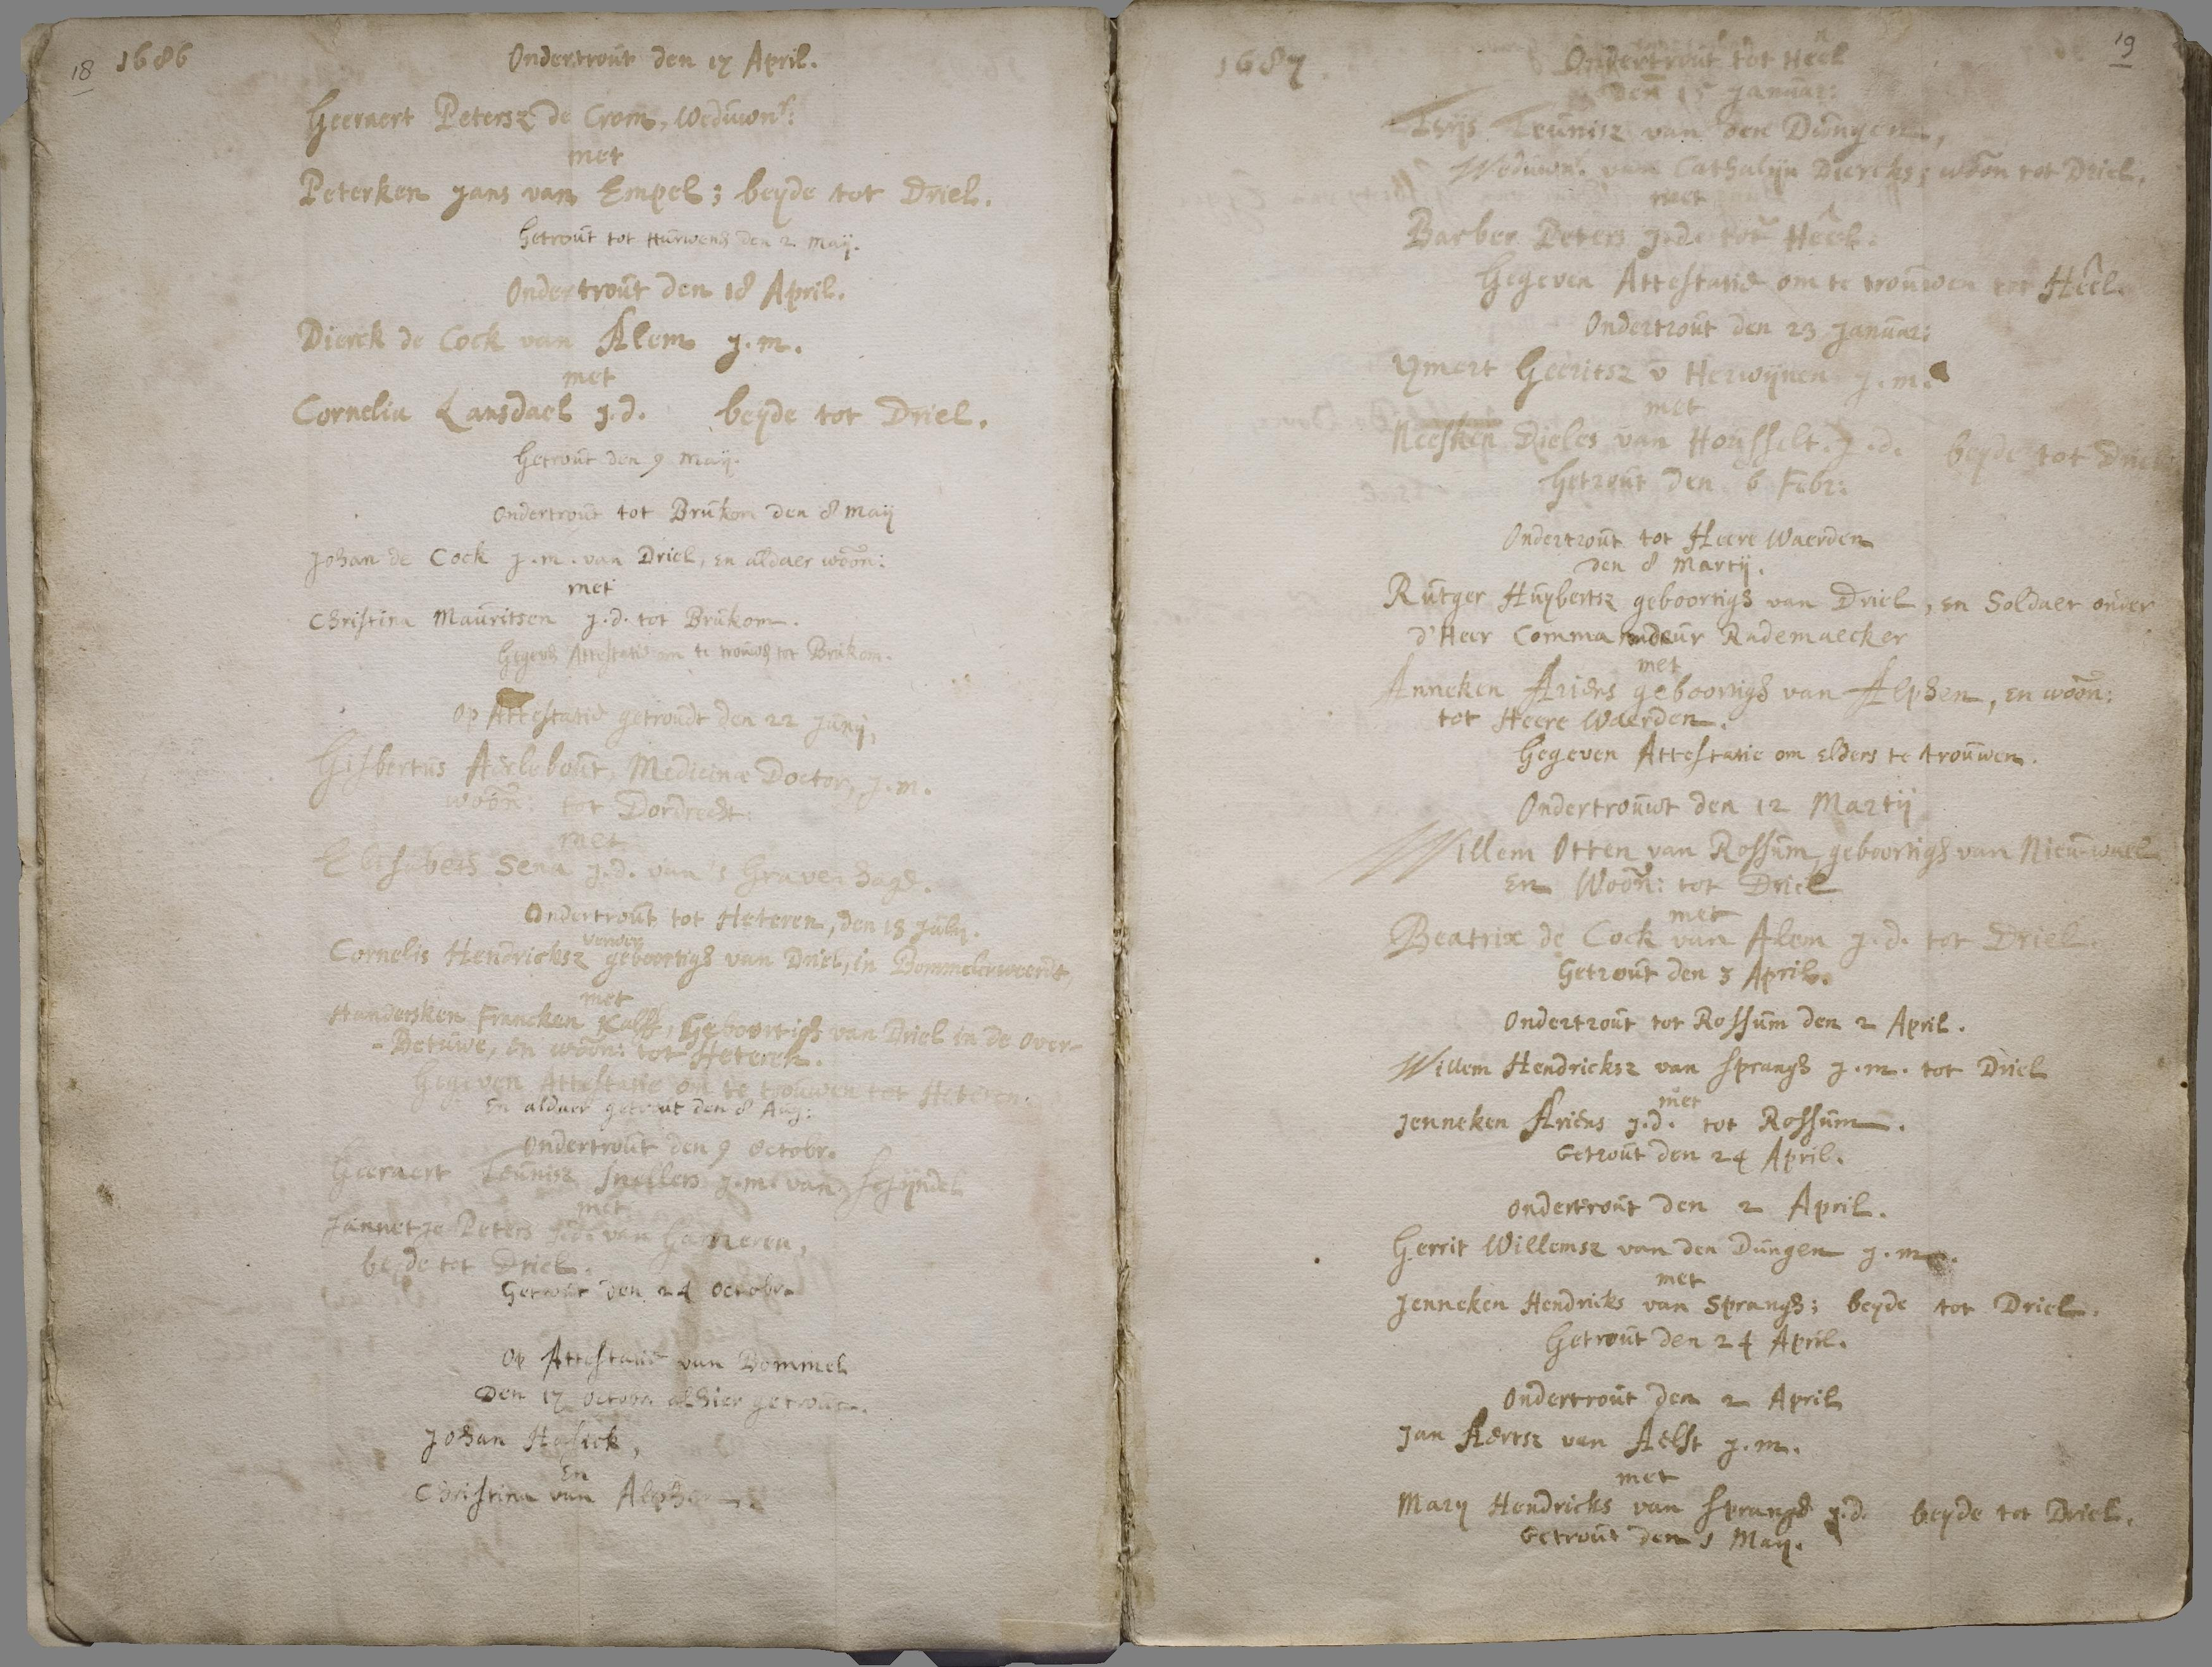 18
1686
Ondertrout den 17 April.
Geeraert Petersz de Crom, Weduwn.r:
met
Peterken Jans van Empel; beyde tot Driel.
Getrout tot Hurwens den 2 Maij.
Ondertrout den 18 April.
Dierck de Cock van Alem J.m.
met
Cornelia Lansdael J.d. beyde tot Driel.
Getrout den 9 Maij.
Ondertrout tot Brukom den 8 Maij
Johan de Cock J.m. van Driel, en aldaer woon:
met
Christina Mauritsen J.d. tot Brukom.
Attestatie om te tot Brukom.
Op Attestatie getroudt den 22 Junij,
Gisbertus Medicinæ Doctor, J.m.
woon: tot Dordrecht.
met
Elisabeth Sena J.d. van 's Gravenhage.
Ondertrout tot Heteren, den 18 July.
Verwey
Cornelis Hendricksz geboortigh van Driel, in Bommelerweerdt,
met
Handersken Francken Kalff, Geboortigh van Driel in de Over-
-Betuwe, en woon: tot Heteren.
Gegeven Attestatie om te trouwen tot Heteren.
En aldaer getrout den 8 Aug:
Ondertrout den 9 Octobr.
Geeraert Teunisz Snellers J.m. van Schijndel
met
Jannetje Peters J.d. van Gameren,
beyde tot Driel.
Getrout den 24 Octobr.
Op Attestatie van Bommel
Den 17 Octobr. alhier getrout.
Johan
En
Christina van Alphen.
1687
19
Ondertrout tot Heel
den 15 Januar:
Thijs Teunisz van den Dungen,
Weduwnr. van Cathalijn Diercks; woon tot Driel.
met
Barber Peters J.d. tot Heel.
Gegeven Attestatie om te trouwen tot Heel.
Ondertrout den 23 Januar:
IJmert Geeritsz v Herwijnen J.m.
met
Neesken Dieles van Housselt. J.d. beyde tot Driel
Getrout den 6 Febr:
Ondertrout tot Heere Waerden
den 8 Martij.
Rutger Huybertsz geboortigh van Driel, en Soldaet onder
d'Heer Commandeur Rademaecker
met
Anneken Ariens geboortigh van Alphen, en woon:
tot Heere Waerden.
Gegeven Attestatie om Elders te trouwen.
Ondertrouwt den 12 Martij
Willem Otten van Rossum, geboortigh van Nieuwael
En Woon: tot Driel
met
Beatrix de Cock van Alem J.d. tot Driel.
Getrout den 3 April.
Ondertrout tot Rossum den 2 April.
Willem Hendricksz van Sprangh J.m. tot Driel
met
Jenneken Ariens J.d. tot Rossum.
Getrout den 24 April.
Ondertrout den 2 April.
Gerrit Willemsz van den Dungen J.m.
met
Jenneken Hendricks van Sprangh; beyde tot Driel.
Getrout den 24 April.
Ondertrout den 2 April
Jan Aertsz van Aelst J.m.
met
Mary Hendricks van Sprangh J.d. beyde tot Driel.
Getrout den 1 Maij.